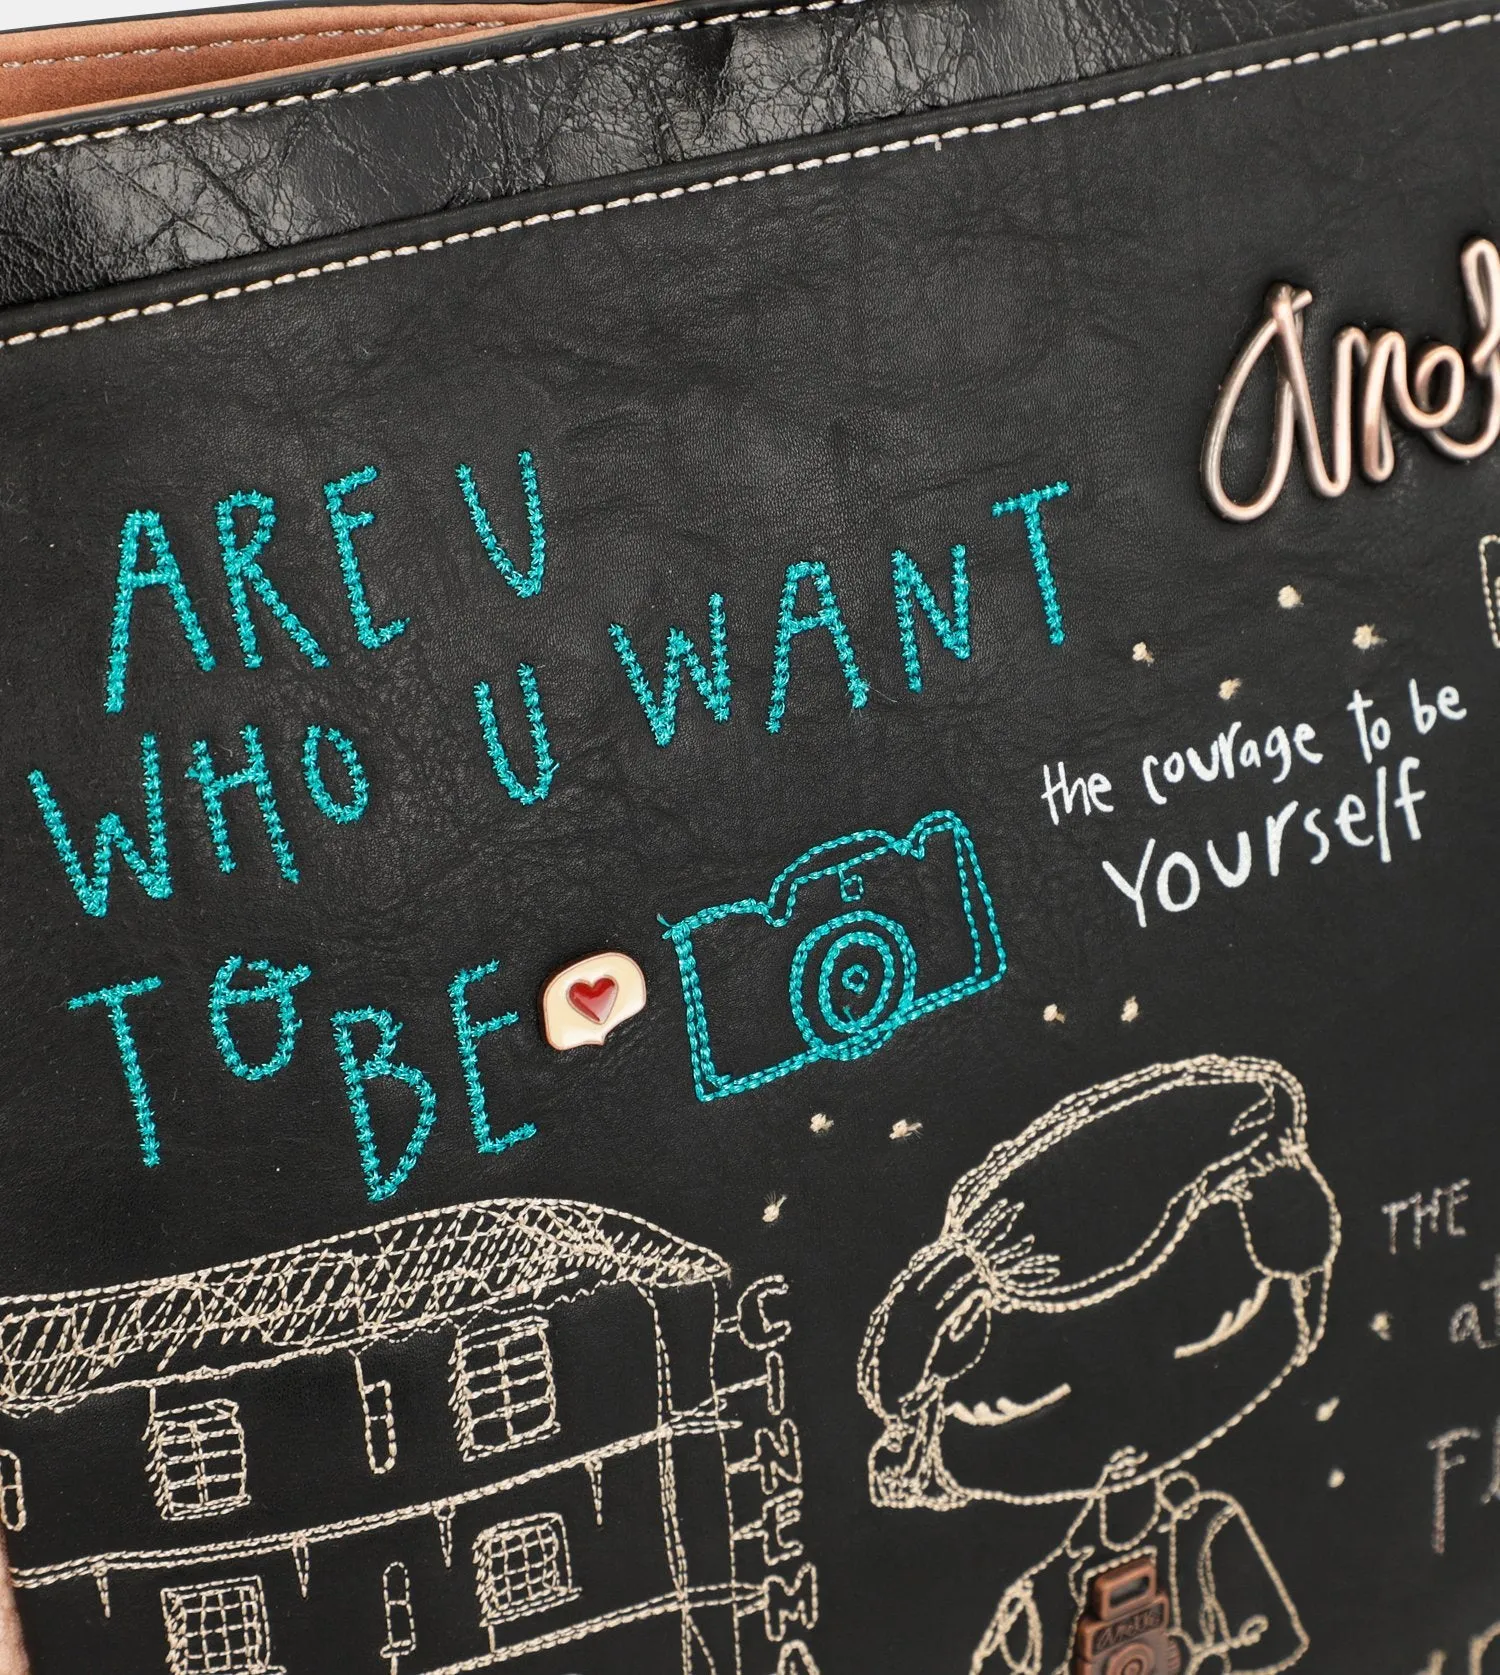 ARE U
WHO U WANT
TO BE
the courage to be
Yourself
THE
CINEMA
Anekke